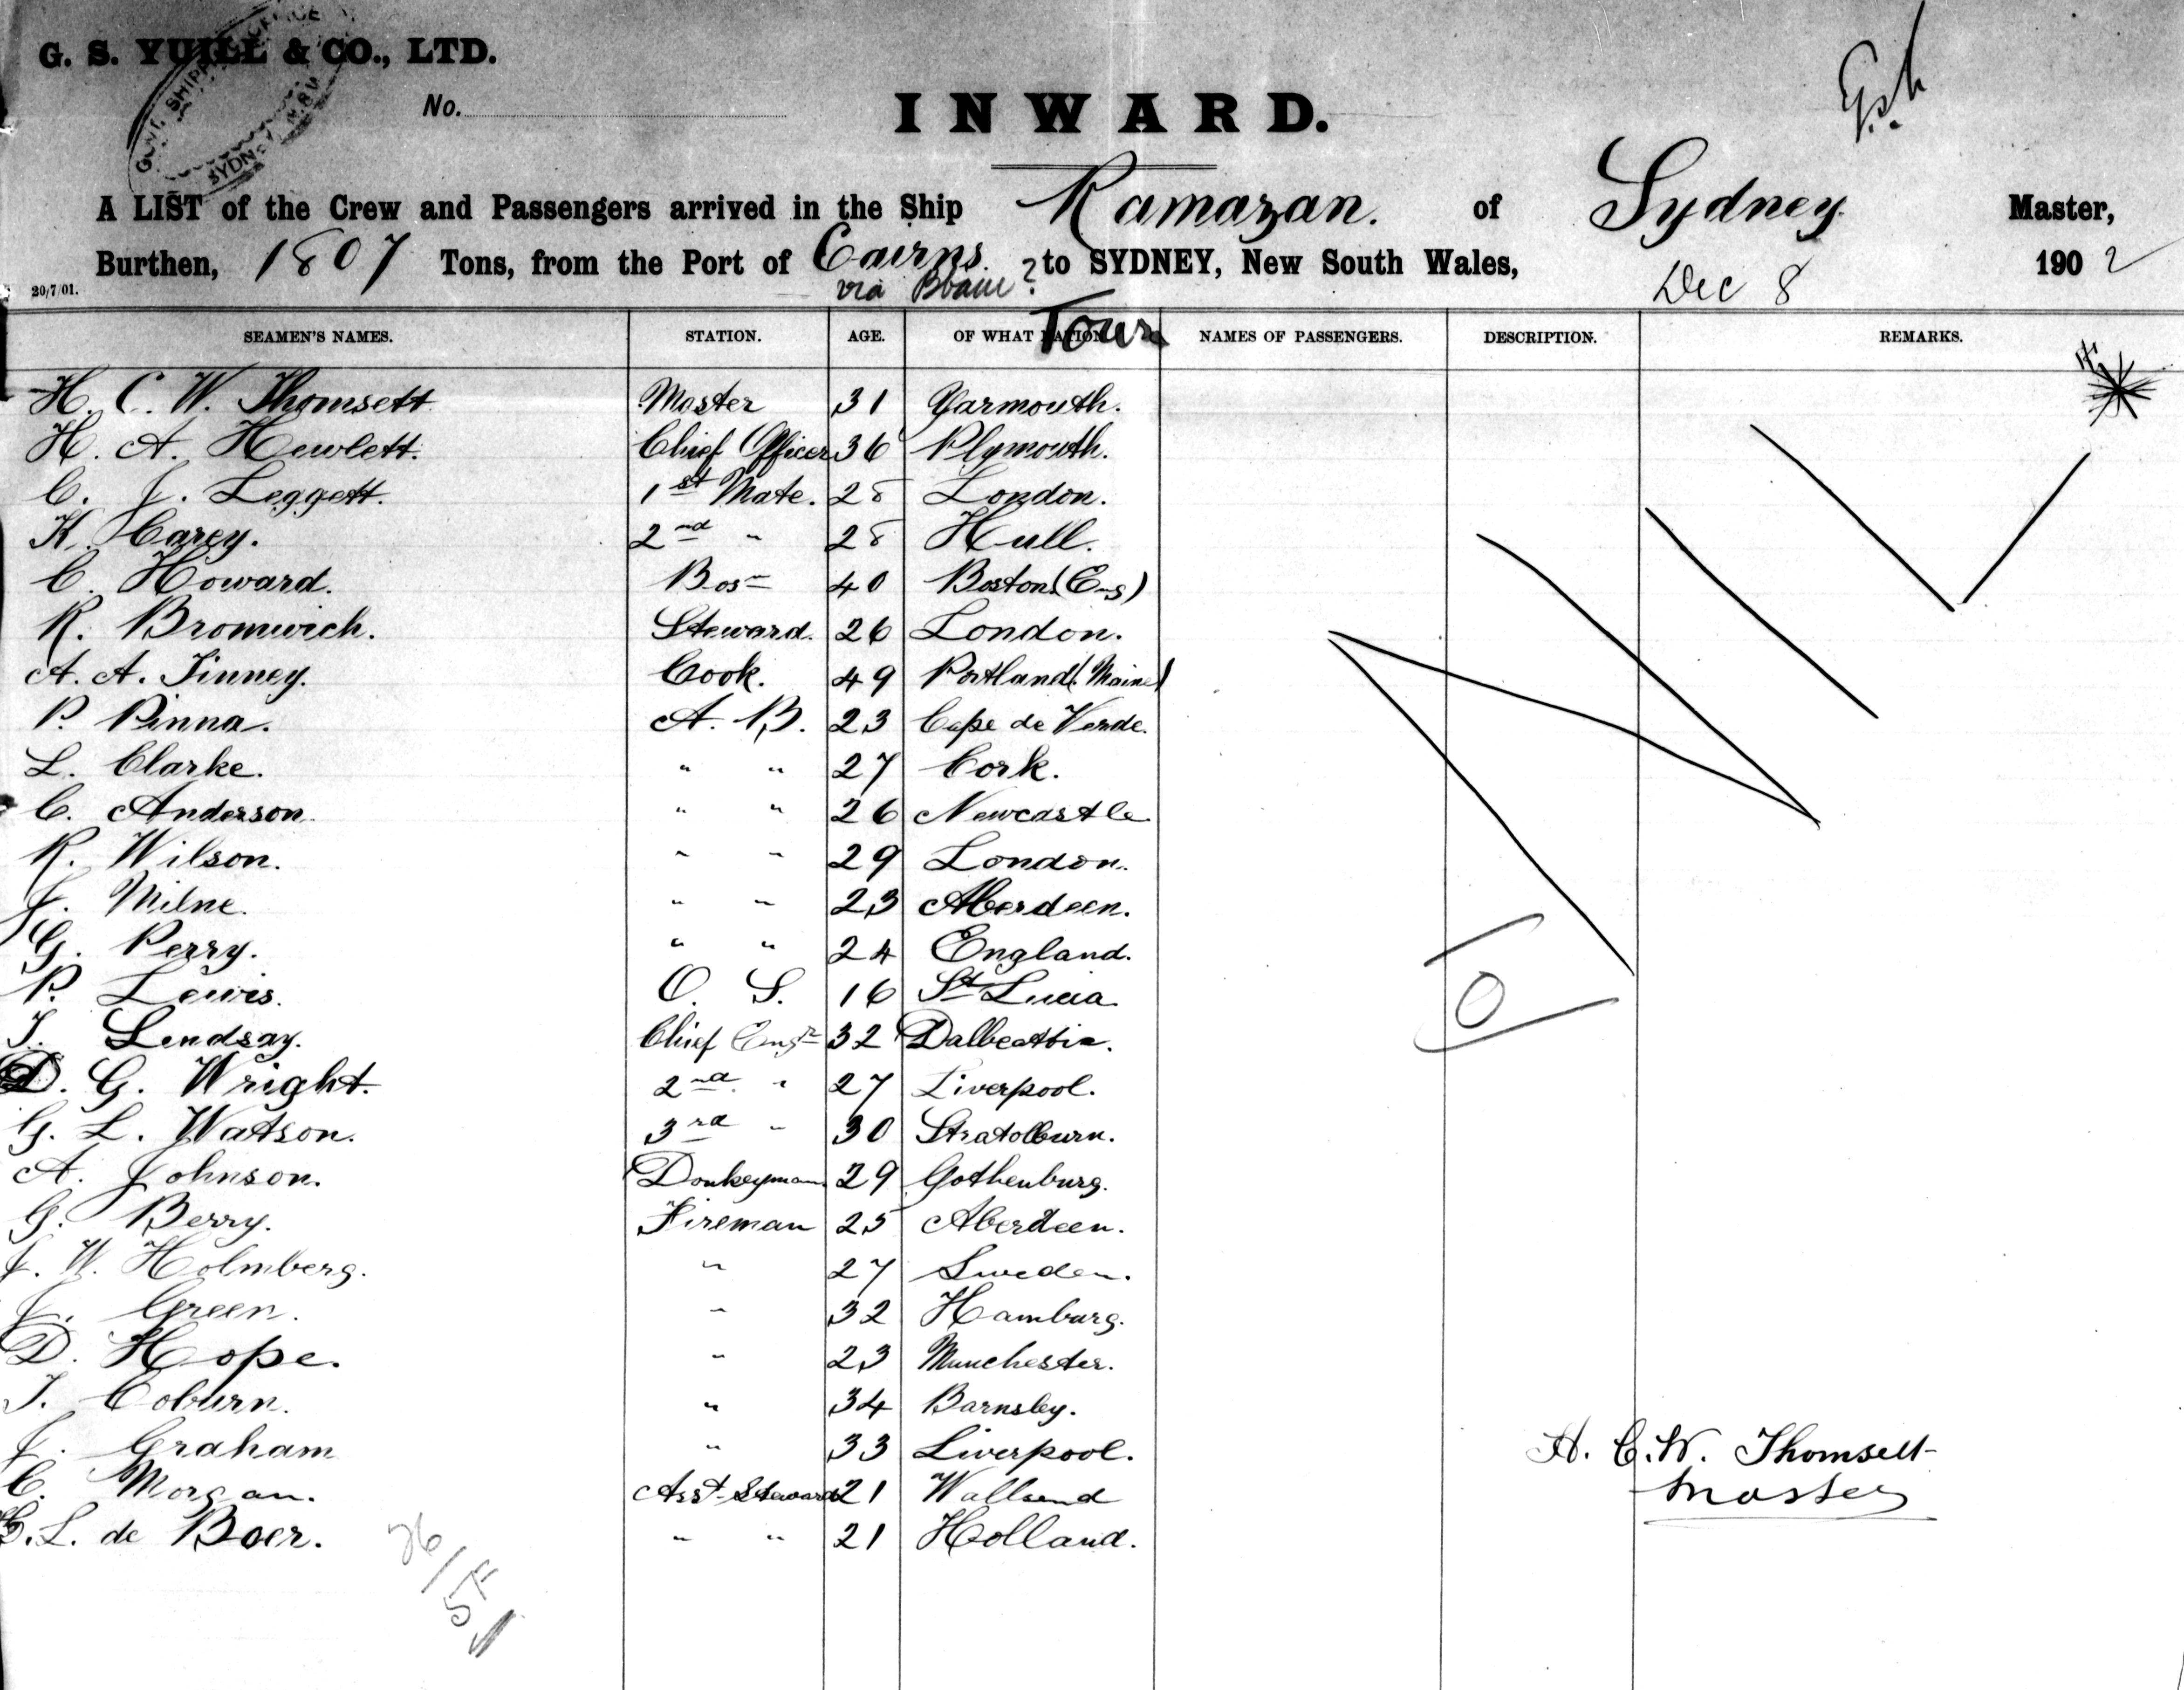 G. S. YUILL & CO., LTD.
GOVT. SHIPPING OFFICE
SYDNEY N.S.W
No.
INWARD.
A LIST of the Crew and Passengers arrived in the Ship Ramazan. of Sydney. Master,
Burthen, 1807 Tons, from the Port of Cairns to SYDNEY, New South Wales, Dec 8 1902
via
20/7/01.
SEAMEN'S NAMES. STATION. AGE. OF WHAT NATION Town NAMES OF PASSENGERS. DESCRIPTION. REMARKS.
H. C. W. Thomsett Master 31 Yarmouth.
H. A. Hewlett. Chief Officer 36 Plymouth.
C. J. Leggett. 1st Mate. 28 London.
K. Carey. 2nd " 28 Hull.
C. Howard. Bosn 40 Boston (Eng)
R. Bromwich. Steward. 26 London.
A. A. Tinney. Cook. 49 Portland (Maine)
P. Pinna. A. B. 23 Cape de Verde.
L. Clarke. " " 27 Cork.
C. Anderson. " " 26 Newcastle
R. Wilson. " " 29 London.
J. Milne. " " 23 Aberdeen.
G. Perry. " " 24 England.
P. Lewis. O. S. 16 St Lucia
T. Lendsay. Chief Engr 32 Dalbeattie.
D. G. Wright. 2nd " 27 Liverpool.
G. L. Watson. 3rd " 30 Stratoburn.
A. Johnson. Donkeyman 29 Gothenburg.
G. Berry. Fireman 25 Aberdeen.
J. W. Holmberg. " 27 Sweden.
J. Green. " 32 Hamburg.
D. Hope. " 23 Manchester.
T. Coburn. " 34 Barnsley.
J. Graham " 33 Liverpool.
C. Morgan. Asst Steward 21 Wallsend
L. de Boer. " " 21 Holland.
H. C. W. Thomsett
Master
26